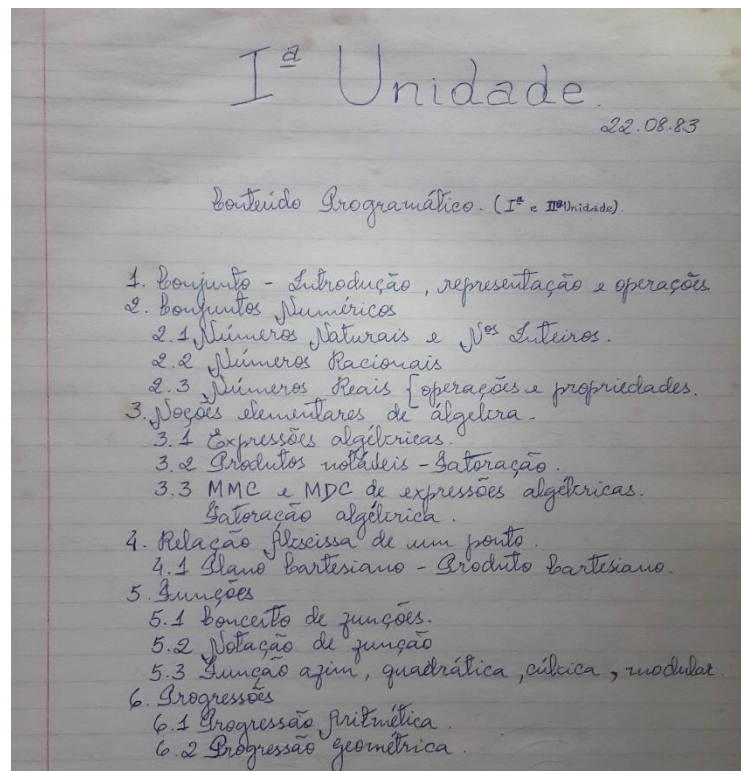 Iª Unidade.
22.08.83
Conteúdo Programático. (Iª e IIª Unidade).
1. Conjunto - Introdução, representação e operações
2. Conjuntos Numéricos
2.1 Números Naturais e Nºs Inteiros.
2.2 Números Racionais
2.3 Números Reais { operações e propriedades.
3. Noções elementares de álgebra.
3.1 Expressões algébricas.
3.2 Produtos notáveis - Fatoração.
3.3 MMC e MDC de expressões algébricas.
Fatoração algébrica.
4. Relação Abscissa de um ponto.
4.1 Plano Cartesiano - Produto Cartesiano.
5. Funções
5.1 Conceito de funções.
5.2 Notação de função
5.3 Função afim, quadrática, cúbica, modular.
6. Progressões
6.1 Progressão Aritmética.
6.2 Progressão geométrica.